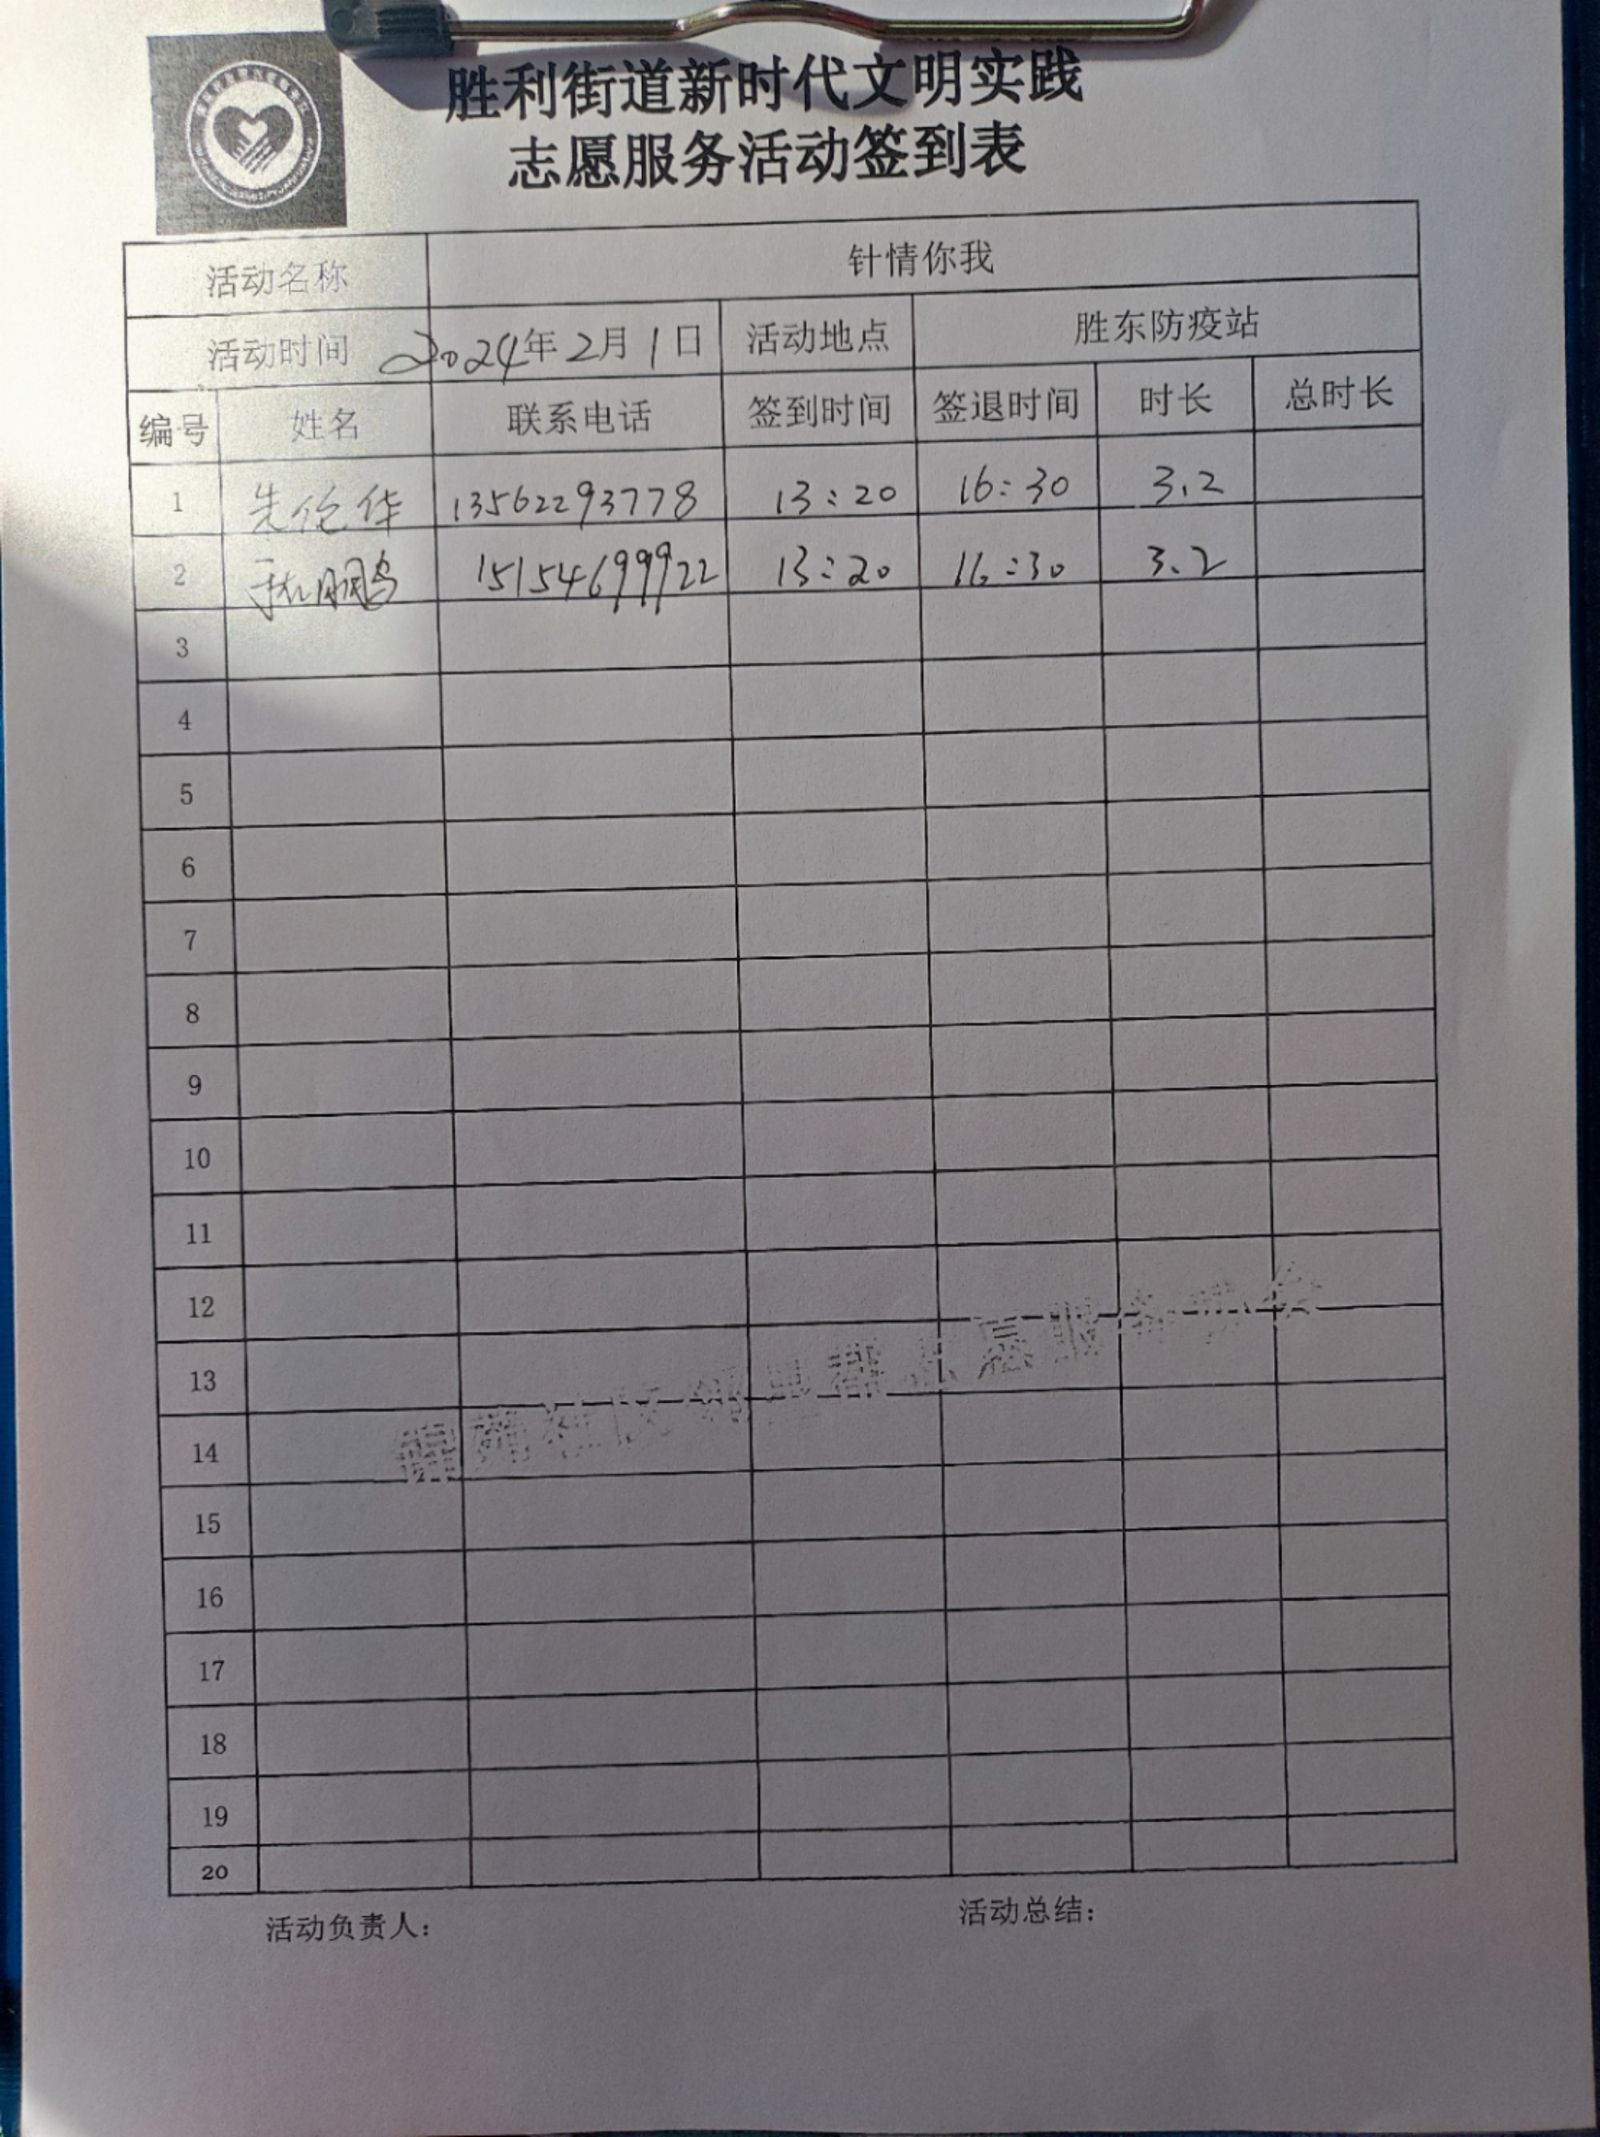 胜利街道新时代文明实践
志愿服务活动签到表
活动名称 针情你我
活动时间 2024年2月1日 活动地点 胜东防疫站
编号 姓名 联系电话 签到时间 签退时间 时长 总时长
1 伦华 13562293778 13:20 16:30 3.2
2 鹏 15154699922 13:20 16:30 3.2
3
4
5
6
7
8
9
10
11
12
13
14
15
16
17
18
19
20
锦苑社区邻里群众志愿服务
活动负责人:
活动总结: